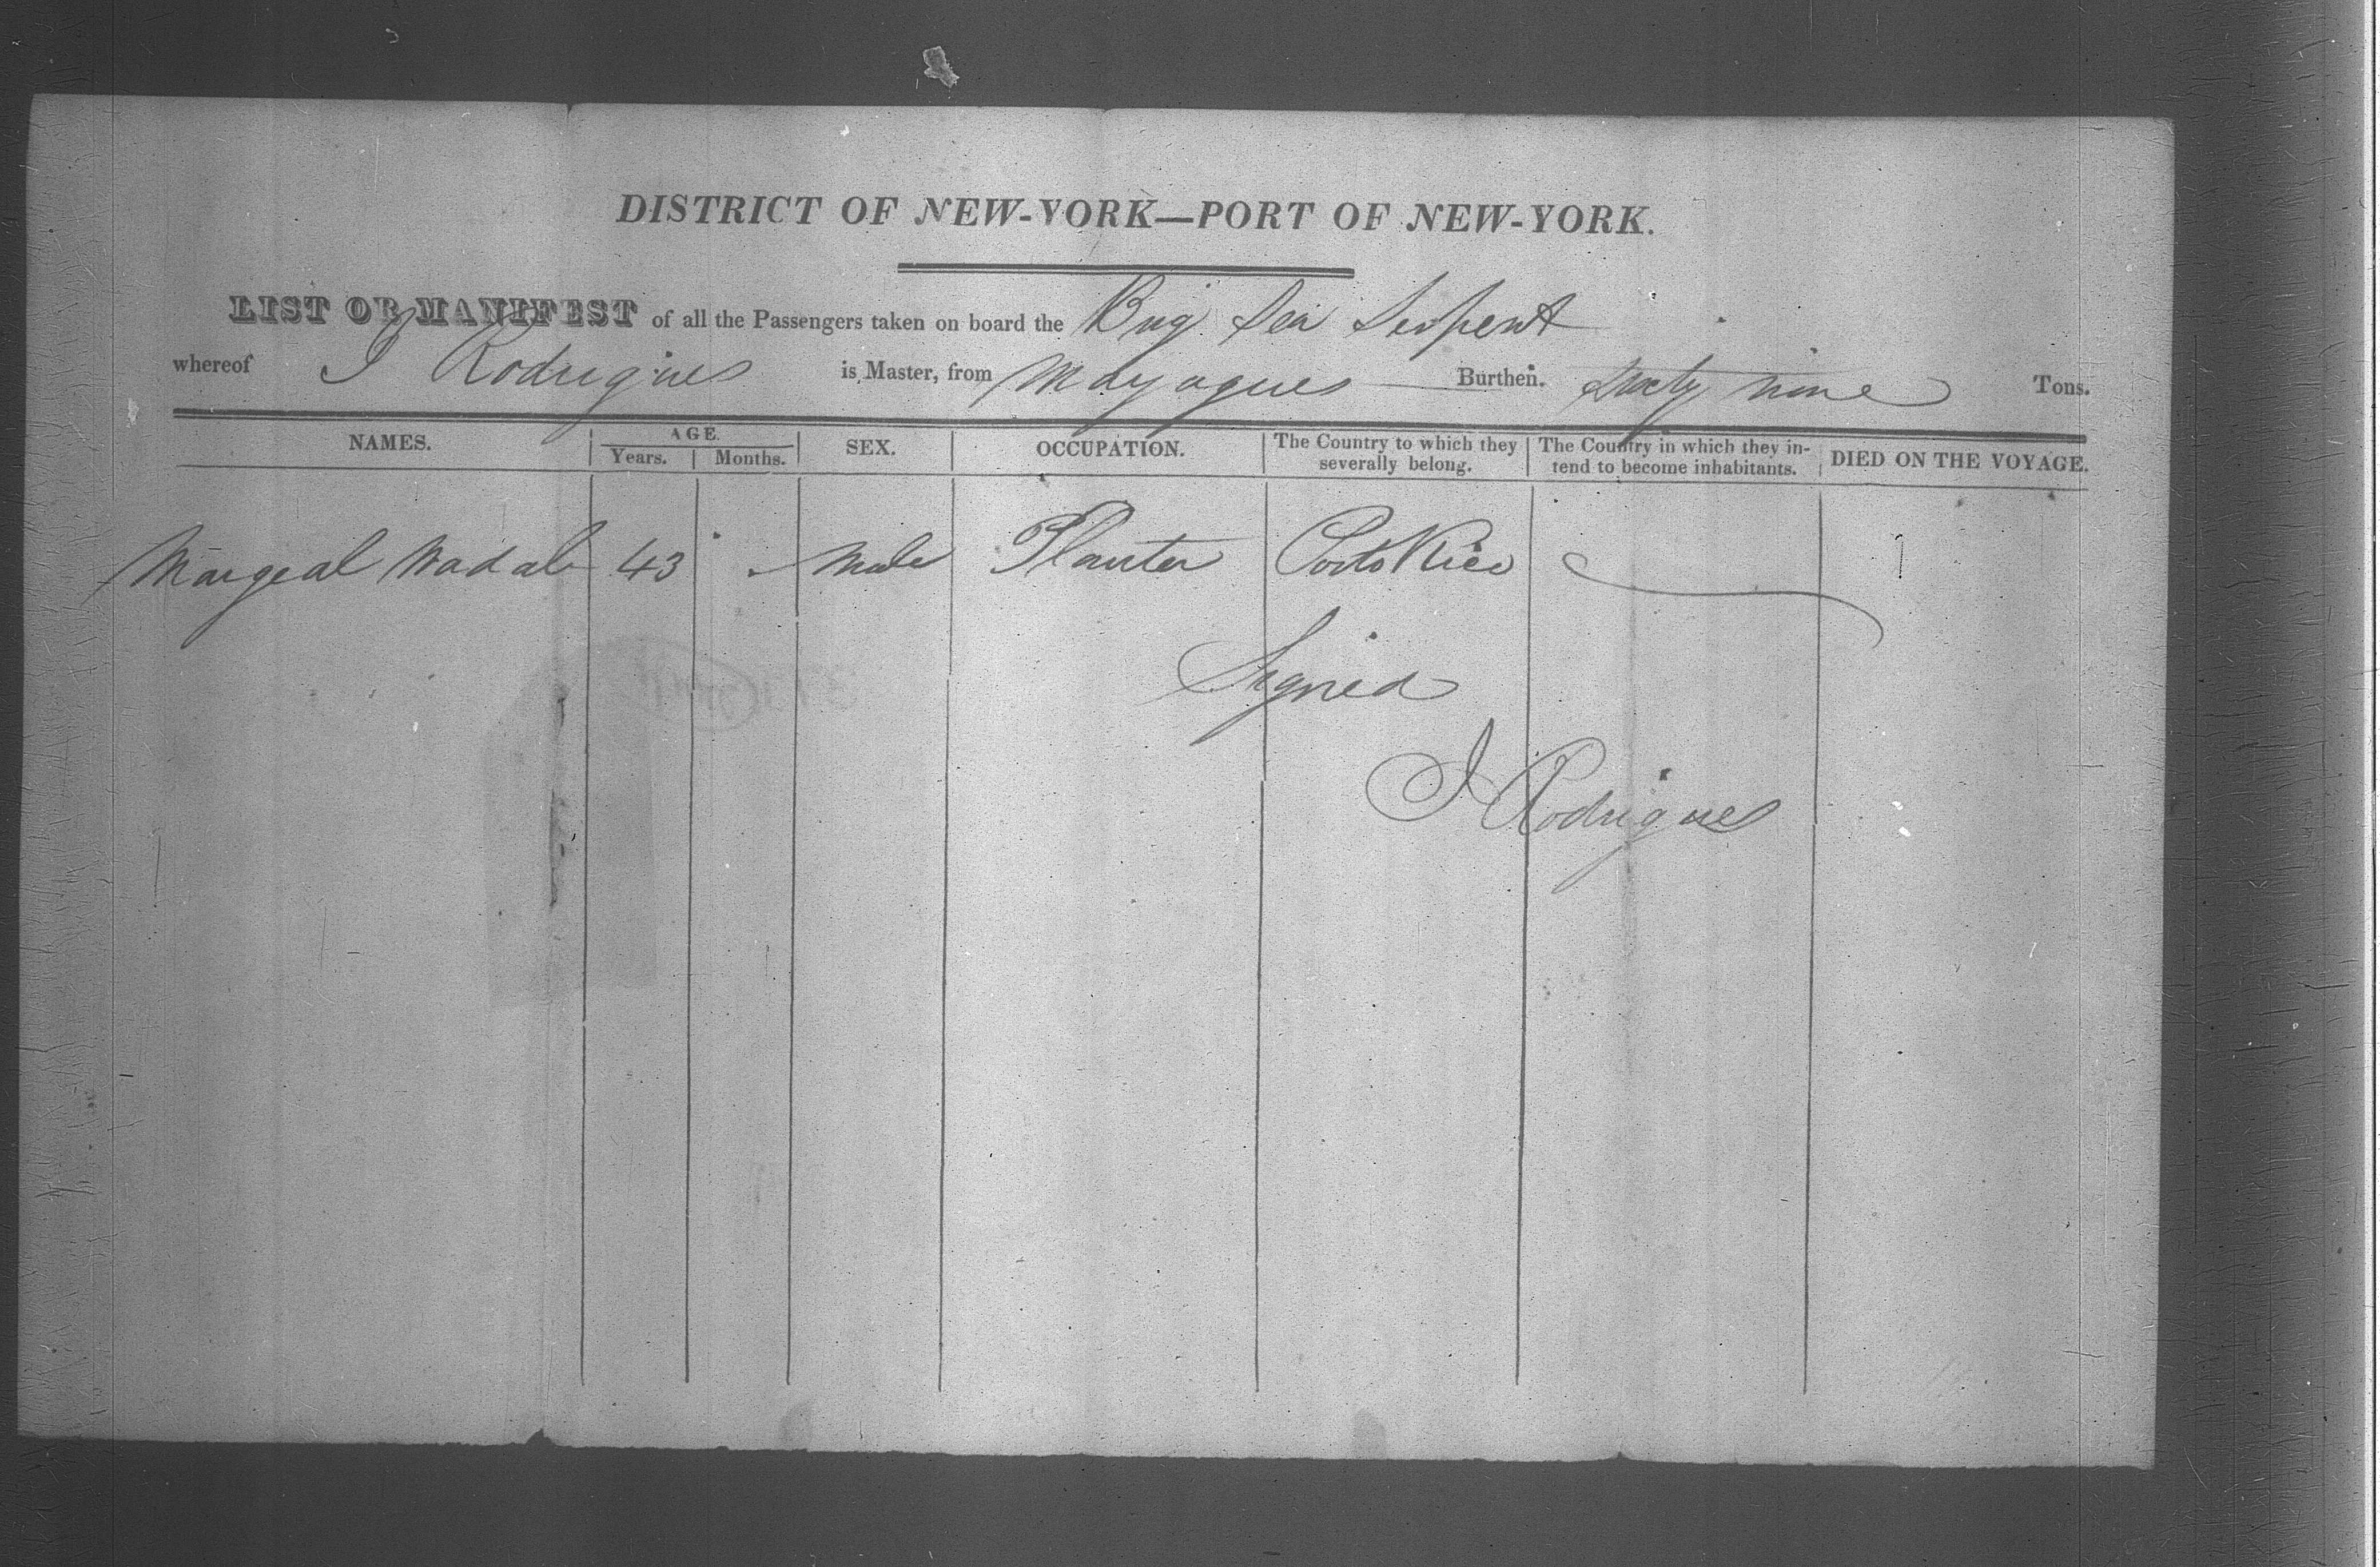 DISTRICT OF NEW-YORK—PORT OF NEW-YORK.
LIST OR MANIFEST of all the Passengers taken on board the Brig Sea Serpent
whereof I Rodrigues is Master, from Mayagues Burthen. Sixty nine Tons.
NAMES. AGE. Years. Months. SEX. OCCUPATION. The Country to which they severally belong. The Country in which they intend to become inhabitants. DIED ON THE VOYAGE.
Margeal Nadal 43 Male Planter Porto Rico
Signed
I Rodrigues